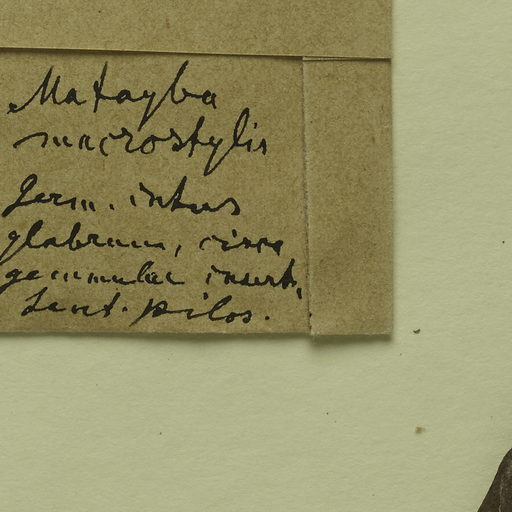 Matayba
macrostylis
Germ. intus
glabrum, circa
gemmulae insert.
tant. pilos.